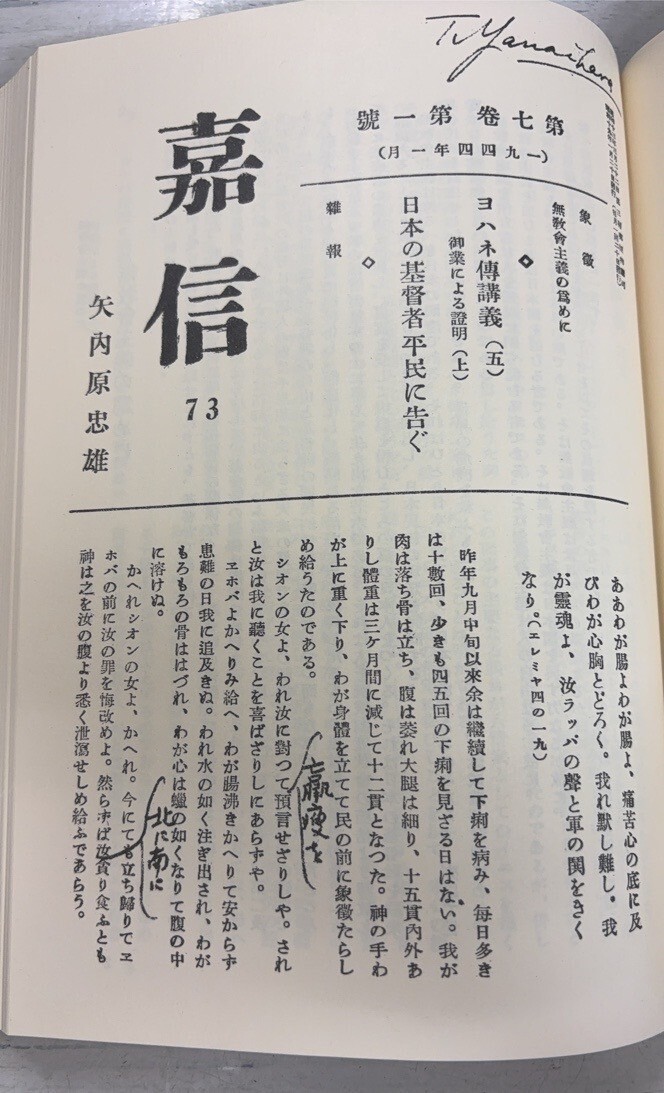 T. Yanaihara
第七卷第一號
(一九四四年一月)
象徵
無敎會主義の爲めに
◆
ヨハネ傳講義(五)
御業による證明(上)
日本の基督者平民に告ぐ
◇
雜報
嘉信
73
矢內原忠雄
ああわが腸よわが腸よ、痛苦心の底に及
びわが心胸とどろく。我れ默し難し。我
が靈魂よ、汝ラッパの聲と軍の鬨をきく
なり。(エレミヤ四の一九)
昨年九月中旬以來余は繼續して下痢を病み、每日多き
は十數回、少きも四五回の下痢を見ざる日はない。我が
肉は落ち骨は立ち、腹は萎れ大腿は細り、十五貫內外あ
りし體重は三ヶ月間に減じて十二貫となつた。神の手わ
が上に重く下り、わが身體を立てて民の前に象徵たらし
め給うたのである。
羸瘦を
シオンの女よ、われ汝に對つて預言せざりしや。され
と汝は我に聽くことを喜ばざりしにあらずや。
ヱホバよかへりみ給へ、わが腸沸きかへりて安からず
患難の日我に追及きぬ。われ水の如く注ぎ出され、わが
もろもろの骨ははづれ、わが心は蠟の如くなりて腹の中
に溶けぬ。
北に南に
かへれシオンの女よ、かへれ。今にても立ち歸りてヱ
ホバの前に汝の罪を悔改めよ。然らずば汝貪り食ふとも
神は之を汝の腹より悉く泄瀉せしめ給ふであらう。